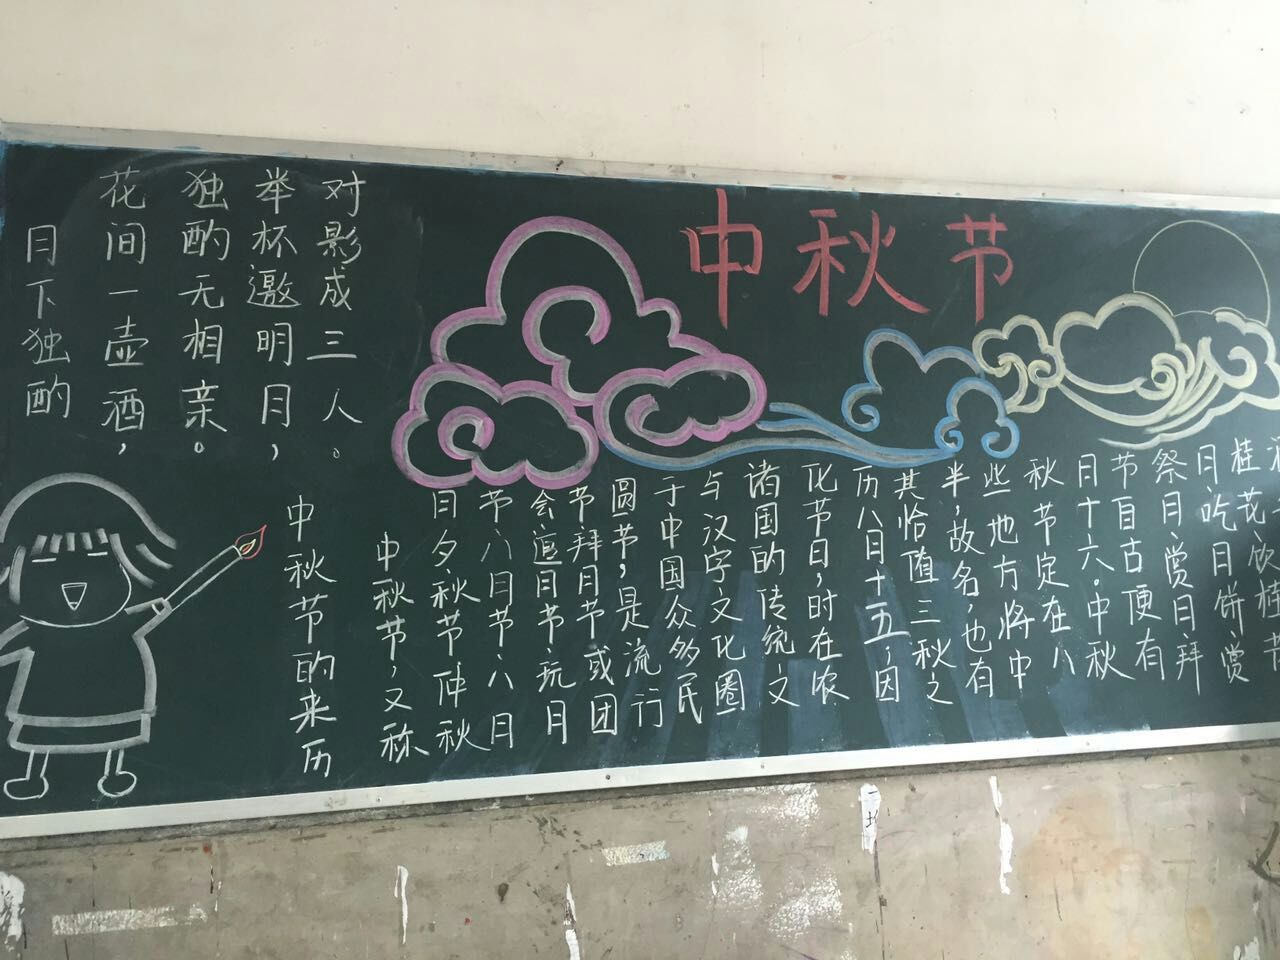 中秋节
月下独酌
花间一壶酒，
独酌无相亲。
举杯邀明月，
对影成三人。
中秋节的来历
中秋节，又称
月夕、秋节、仲秋
节、八月节、八月
会、追月节、玩月
节、拜月节或团
圆节，是流行
于中国众多民
与汉字文化圈
诸国的传统文
化节日，时在农
历八月十五，因
其恰值三秋之
半，故名，也有
些地方将中
秋节定在八
月十六。中秋
节自古便有
祭月、赏月、拜
月、吃月饼、赏
桂花、饮桂